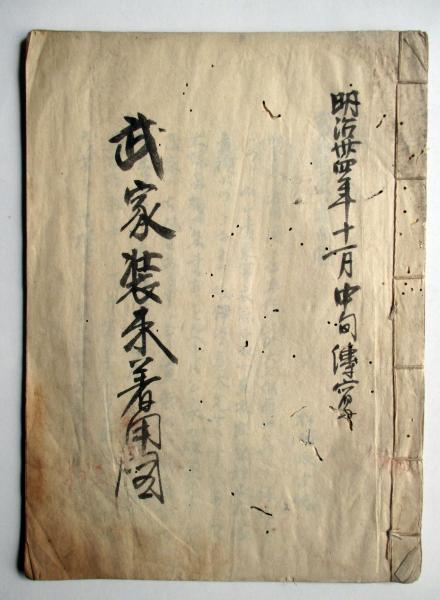 明治卅四年十一月中旬傳寫
武家装束着用図